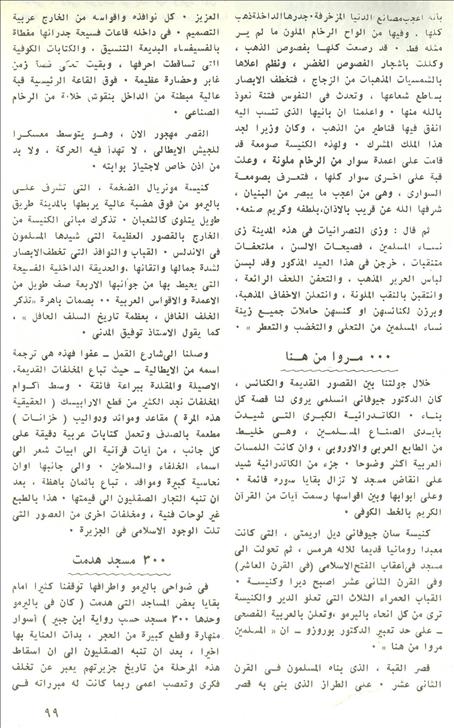 بأنه اعجب مصانع الدنيا المزخرفة ٠ جدرها الداخلة ذهب
كلها ٠ وفيها من الواح الرخام الملون ما لم ير
مثله قط ٠ قد رصعت كلها بفصوص الذهب ،
وكللت بأشجار الفصوص الخضر ، ونظم اعلاها
بالشمسيات المذهبات من الزجاج ، فتخطف الابصار
بساطع شعاعها ، وتحدث في النفوس فتنة نعوذ
بالله منها ٠ واعلمنا ان بانيها الذي تنسب اليه
انفق فيها قناطير من الذهب ، وكان وزيرا لجد
هذا الملك المشرك ٠ ولهذه الكنيسة صومعة قد
قامت على اعمدة سوار من الرخام ملونة ، وعلت
قبة على اخرى سوار كلها ، فتعرف بصومعة
السوارى ، وهي من اعجب ما يبصر من البنيان ،
شرفها الله عن قريب بالاذان ، بلطفه وكريم صنعه ٠
ثم قال : وزي النصرانيات في هذه المدينة زي
نساء المسلمين ، فصيحات الالسن ، ملتحفات
متنقبات ٠ خرجن في هذا العيد المذكور وقد لبسن
لباس الحرير المذهب ، والتحفن اللحف الرائعة ،
وانتقبن بالنقب الملونة ، وانتعلن الاخفاف المذهبة،
وبرزن لكنائسهن او كنسهن حاملات جميع زينة
نساء المسلمين من التحلي والتخضب والتعطر » ٠
٠٠٠ مروا من هنا
خلال جولتنا بين القصور القديمة والكنائس ،
كان الدكتور جيوفاني انسلمي يروى لنا قصة كل
بناء ٠ الكاتدرائية الكبرى التي شيدت
بأيدى الصناع المسلمين ، وهي خليط
من الطابع العربي والاوروبي ، وان كانت اللمسات
العربية اكثر وضوحا ٠ جزء من الكاتدرائية شيد
على انقاض مسجد لا تزال بقايا سوره قائمة ٠
وعلى ابوابها وبين اقواسها رسمت آيات من القرآن
الكريم بالخط الكوفي ٠
كنيسة سان جيوفاني ديل اريمتي ، التي كانت
معبدا رومانيا قديما للاله هرمس ، ثم تحولت الى
مسجد في اعقاب الفتح الاسلامي (في القرن العاشر)
وفي القرن الثاني عشر اصبح ديرا وكنيسة ٠
القباب الحمراء الثلاث التي تعلو الدير والكنيسة
ترى من كل انحاء باليرمو ، وتعلن بالعربية الفصحى
ـ على حد تعبير الدكتور بوروزو ـ ان « المسلمين
مروا من هنا » ٠
قصر القبة ، الذى بناه المسلمون في القرن
الثاني عشر ٠ على الطراز الذى بني به قصر
العزيز ٠ كل نوافذه واقواسه من الخارج عربية
التصميم ٠ في داخله قاعات فسيحة جدرانها مغطاة
بالفسيفساء البديعة التنسيق ، والكتابات الكوفية
التي تساقطت احرفها ، وبقيت تحكى قصة زمن
غابر وحضارة عظيمة ٠ فوق القاعة الرئيسية قبة
عالية مبطنة من الداخل بنقوش خلابة من الرخام
الصناعي ٠
القصر مهجور الان ، وهو يتوسط معسكرا
للجيش الايطالي ، لا تهدأ فيه الحركة ، ولا بد
من اذن خاص لاجتياز بوابته ٠
كنيسة مونريال الضخمة ، التي تشرف على
باليرمو من فوق هضبة عالية يربطها بالمدينة طريق
طويل يتلوى كالثعبان ٠ تذكرك مباني الكنيسة من
الخارج بالقصور العظيمة التي شيدها المسلمون
في الاندلس ٠ القباب والنوافذ التي تخطف الابصار
لشدة جمالها واتقانها ، والحديقة الداخلية الفسيحة
التي يحيط بها من جوانبها الاربعة صف طويل من
الاعمدة والاقواس العربية ٠٠ بصمات باهرة « تذكر
الخلف الغافل ، بعظمة تاريخ السلف العاقل » ،
كما يقول الاستاذ توفيق المدني ٠
وصلنا الى شارع القمل ـ عفوا فهذه هي ترجمة
اسمه من الايطالية ـ حيث تباع المخلفات القديمة،
الاصيلة والمقلدة ببراعة فائقة ٠ وسط اكوام
المخلفات نجد الكثير من قطع الارابيسك (الحقيقية
هذه المرة ) مقاعد وموائد ودواليب ( خزانات )
مطعمة بالصدف وتحمل كتابات عربية دقيقة على
كل جانب ، من آيات قرآنية الى ابيات شعر الى
اسماء الخلفاء والسلاطين ٠ والى جانبها اوان
نحاسية كبيرة ومواقد ، تباع بأثمان باهظة ، بعد
ان تنبه التجار الصقليون الى قيمتها ٠ هذا بالطبع
غير لوحات فنية ، ومخلفات اخرى من العصور التي
تلت الوجود الاسلامي في الجزيرة ٠
٣٠٠ مسجد هدمت
في ضواحي باليرمو واطرافها توقفنا كثيرا امام
بقايا بعض المساجد التي هدمت ( كان في باليرمو
وحدها ٣٠٠ مسجد حسب رواية ابن جبير ) أسوار
منهارة وقطع كبيرة من الحجر ، بدأت العناية بها
اخيرا ، بعد ان تنبه الصقليون الى ان اسقاط
هذه المرحلة من تاريخ جزيرتهم يعبر عن تخلف
فكرى وتعصب اعمى ربما كانت له مبرراته في
٩٩